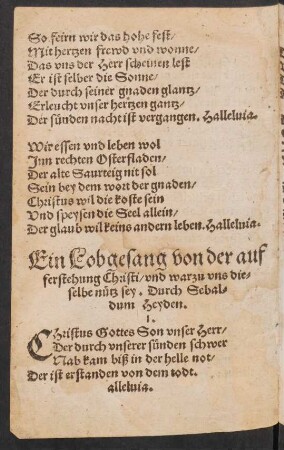 So feirn wir das hohe fest/
Mit hertzen frewd vnd wonne/
Das vns der Herr scheinen lest
Er ist selber die Sonne/
Der durch seiner gnaden glantz/
Erleucht vnser hertzen gantz/
Der sünden nacht ist vergangen. Halleluia.
Wir essen vnd leben wol
Inn rechten Osterfladen/
Der alte Saurteig nit sol
Sein bey dem wort der gnaden/
Christus wil die koste sein
Vnd speysen die Seel allein/
Der glaub wil keins andern leben. Halleluia.
Ein Lobgesang von der auff
ferstehung Christi/ vnd warzu vns die-
selbe nütz sey. Durch Sebal-
dum Heyden.
1.
CHristus Gottes Son vnser Herr/
Der durch vnserer sünden schwer
Nab kam biß in der helle not/
Der ist erstanden von dem todt.
alleluia.